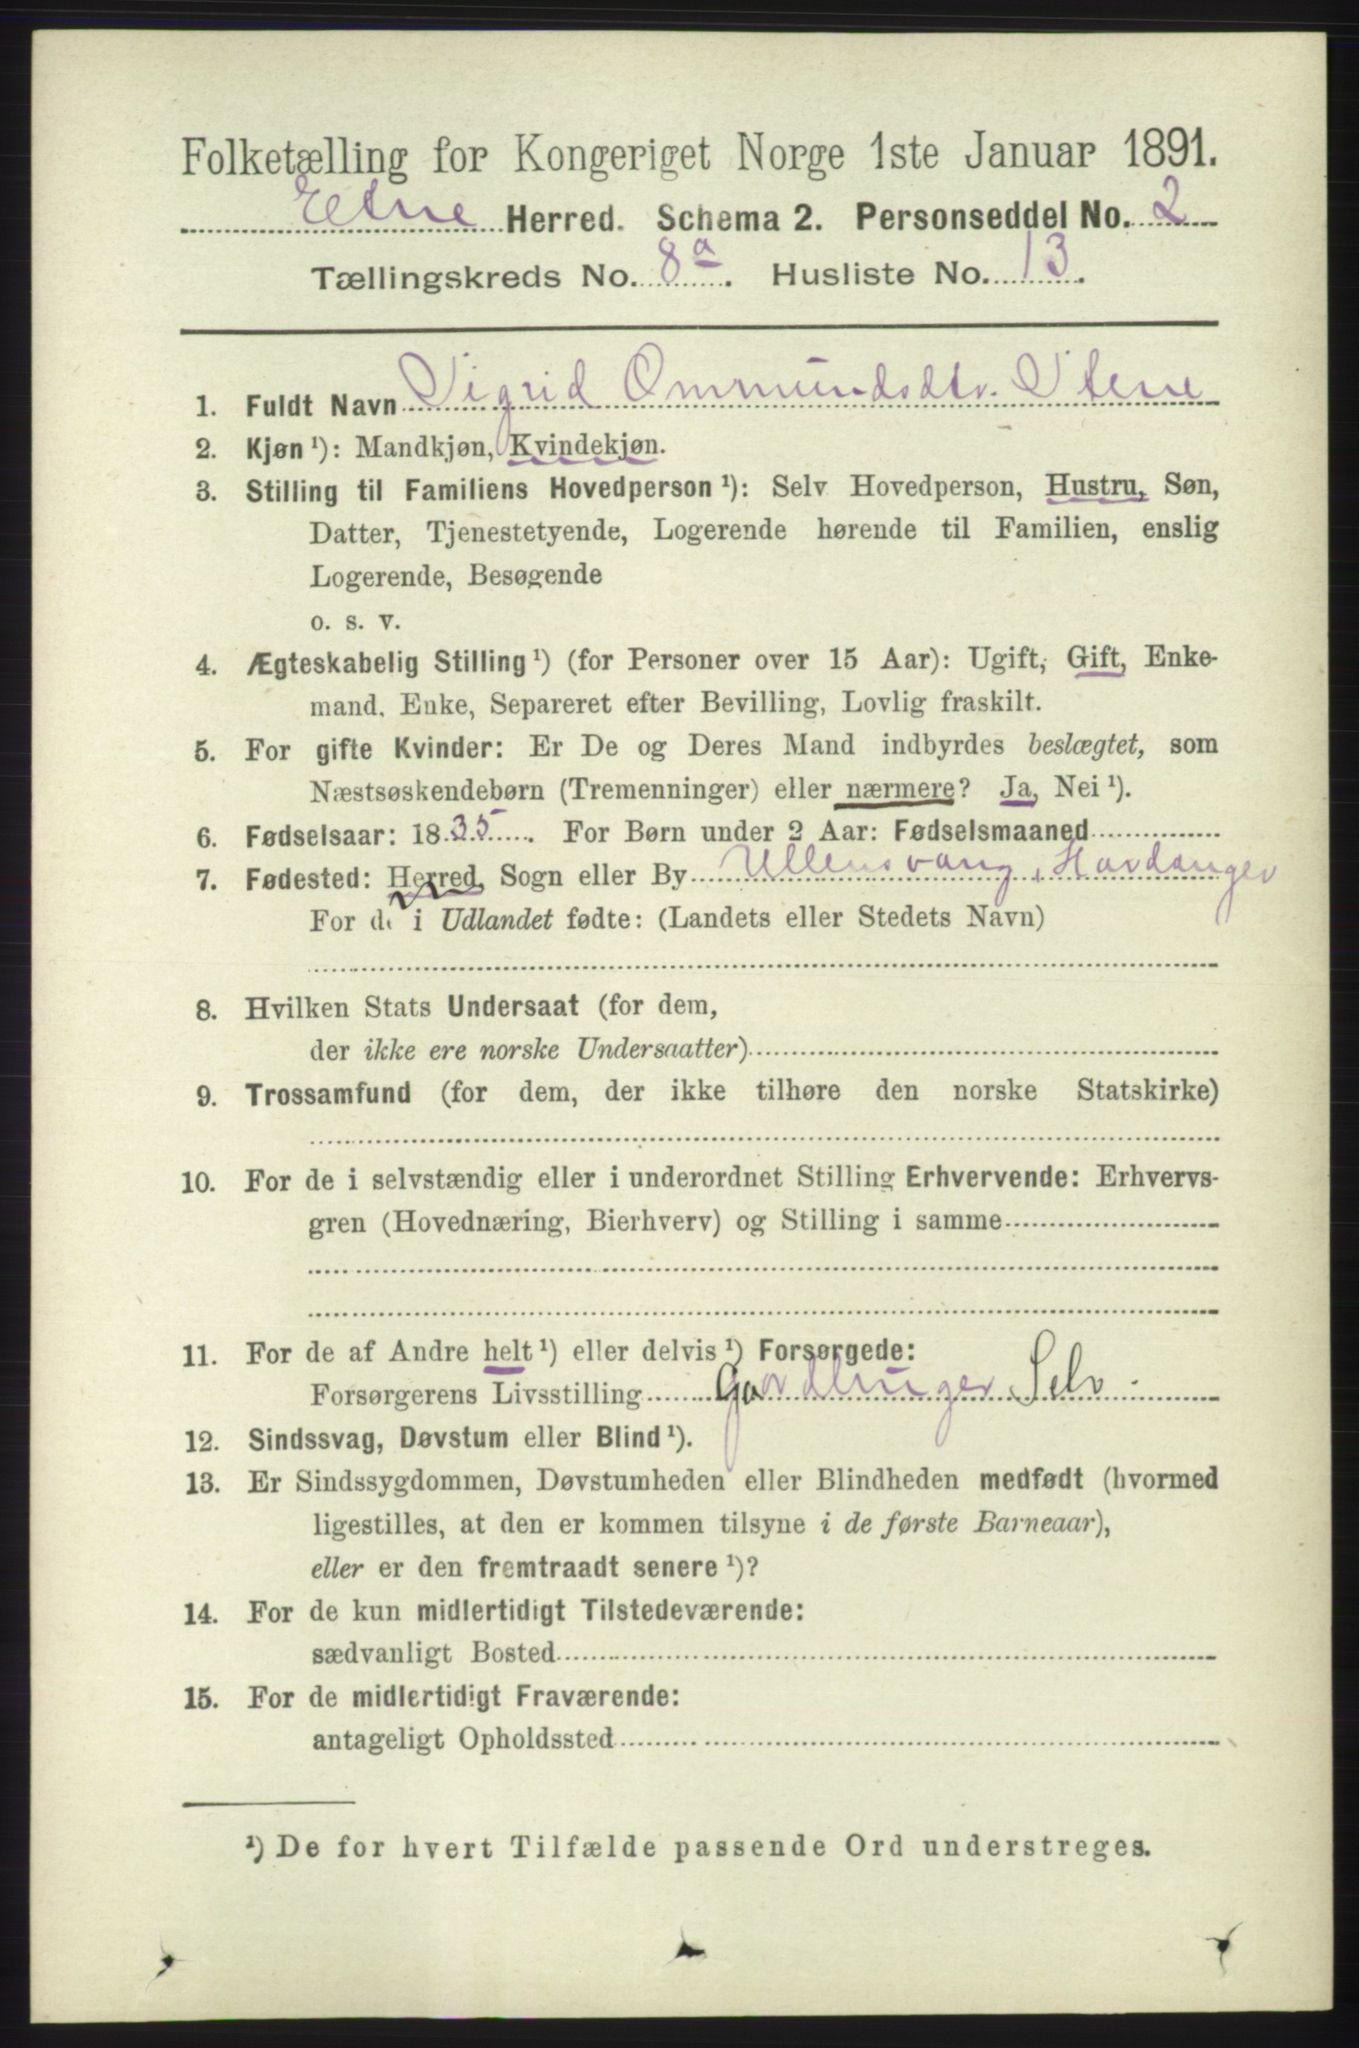 Folketælling for Kongeriget Norge 1ste Januar 1891.
Etne Herred. Schema 2. Personseddel No. 2
Tællingskreds No. 8a. Husliste No. 13.
1. Fuldt Navn Sigrid Ommundsdtr. Stene
2. Kjøn ¹): Mandkjøn, Kvindekjøn.
3. Stilling til Familiens Hovedperson ¹): Selv Hovedperson, Hustru, Søn,
Datter, Tjenestetyende, Logerende hørende til Familien, enslig
Logerende, Besøgende
o. s. v.
4. Ægteskabelig Stilling ¹) (for Personer over 15 Aar): Ugift, Gift, Enke-
mand, Enke, Separeret efter Bevilling, Lovlig fraskilt.
5. For gifte Kvinder: Er De og Deres Mand indbyrdes beslægtet, som
Næstsøskendebørn (Tremenninger) eller nærmere? Ja, Nei ¹).
6. Fødselsaar: 1835. For Børn under 2 Aar: Fødselsmaaned
7. Fødested: Herred, Sogn eller By Ullensvang, Hardanger
For de i Udlandet fødte: (Landets eller Stedets Navn)
8. Hvilken Stats Undersaat (for dem,
der ikke ere norske Undersaatter)
9. Trossamfund (for dem, der ikke tilhøre den norske Statskirke)
10. For de i selvstændig eller i underordnet Stilling Erhvervende: Erhvervs-
gren (Hovednæring, Bierhverv) og Stilling i samme
11. For de af Andre helt ¹) eller delvis ¹) Forsørgede:
Forsørgerens Livsstilling Gardbruger Selv.
12. Sindssvag, Døvstum eller Blind ¹).
13. Er Sindssygdommen, Døvstumheden eller Blindheden medfødt (hvormed
ligestilles, at den er kommen tilsyne i de første Barneaar),
eller er den fremtraadt senere ¹)?
14. For de kun midlertidigt Tilstedeværende:
sædvanligt Bosted
15. For de midlertidigt Fraværende:
antageligt Opholdssted
¹) De for hvert Tilfælde passende Ord understreges.